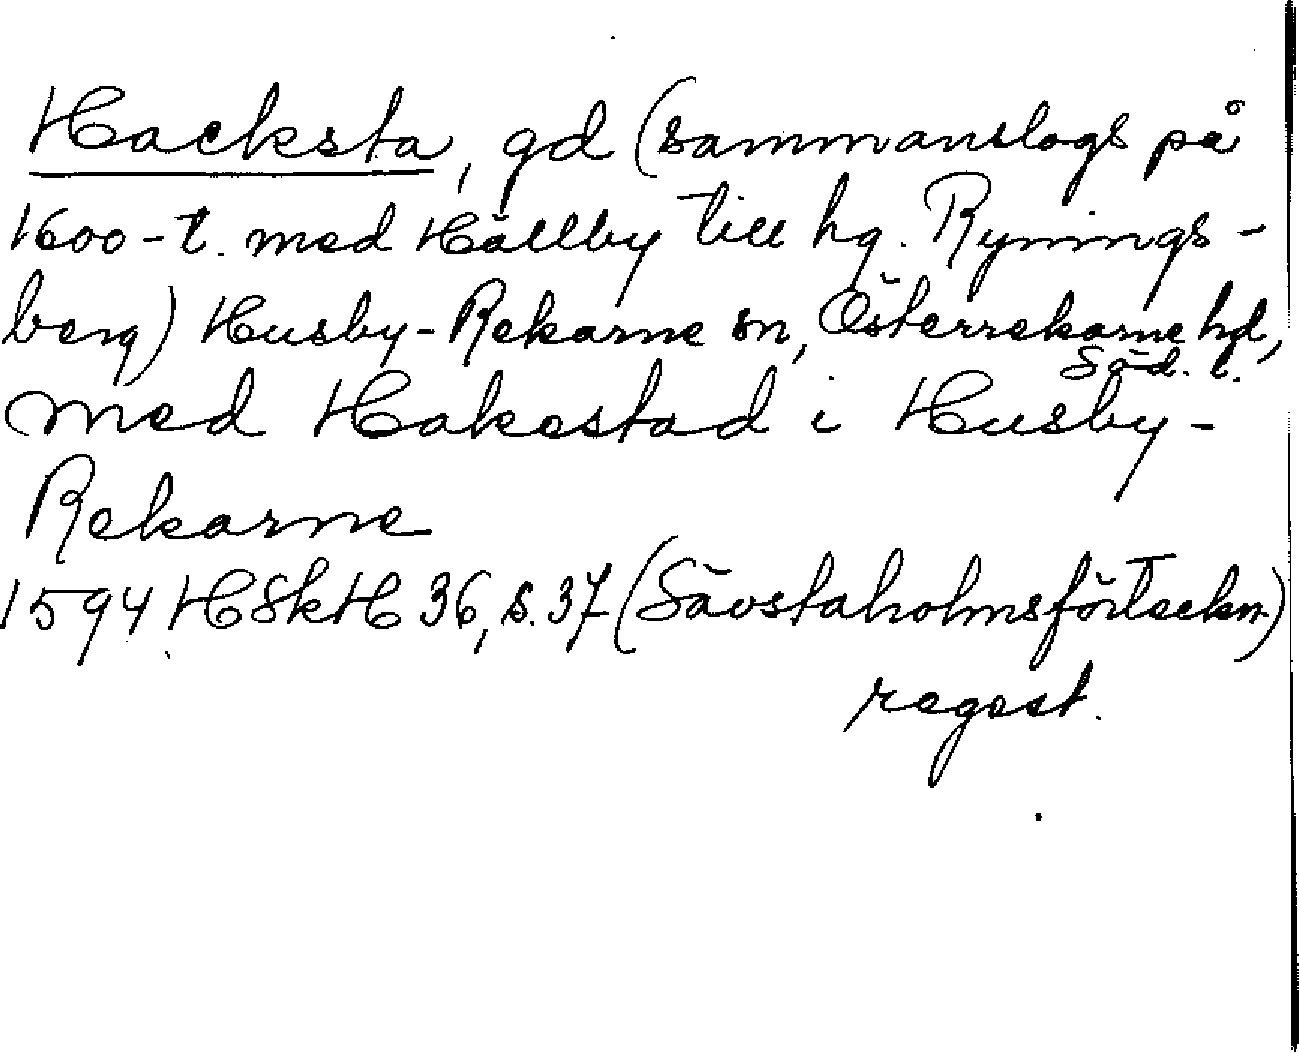 Hacksta, gd (sammanslogs på
1600-t. med Hällby till hg. Rynings-
berg) Husby-Rekarne sn, Österrekarne hd,
Söd. l.
med Hakestad i Husby-
Rekarne
1594 HSkH 36, s. 37 (Sävstaholmsförteckn.)
regest.